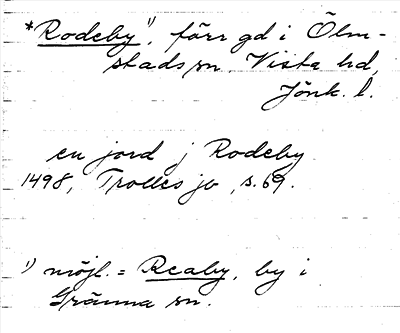 *Rodeby¹⁾, förr gd i Ölm-
stads sn. Vista hd,
Jönk. l.
en jord j Rodeby
1498, Trolles jb, s. 69.
¹⁾ möjl. = Reaby, by i
Gränna sn.